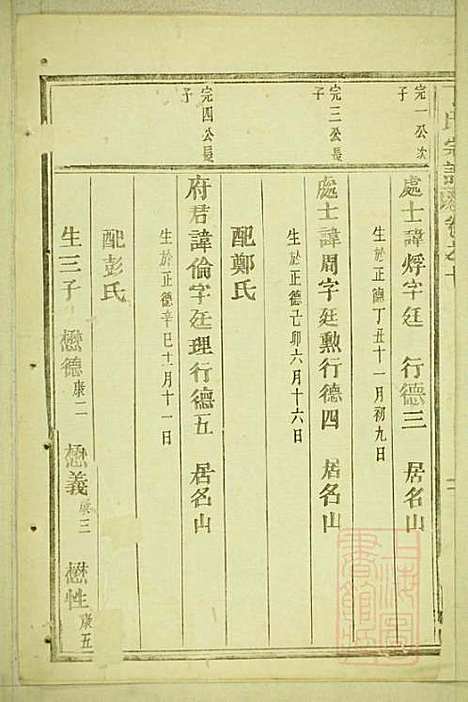 氏宗譜
卷之十
完一公次子
處士諱烰字廷 行德三 居名山
生於正德丁丑十一月初九日
完三公長子
處士諱周字廷勲行德四 居名山
生於正德己卯六月十六日
配鄭氏
完四公長子
府君諱倫字廷理行德五 居名山
生於正德辛巳十二月十一日
配彭氏
生三子 懋德康二 懋義康三 懋性康五
上海圖書館藏